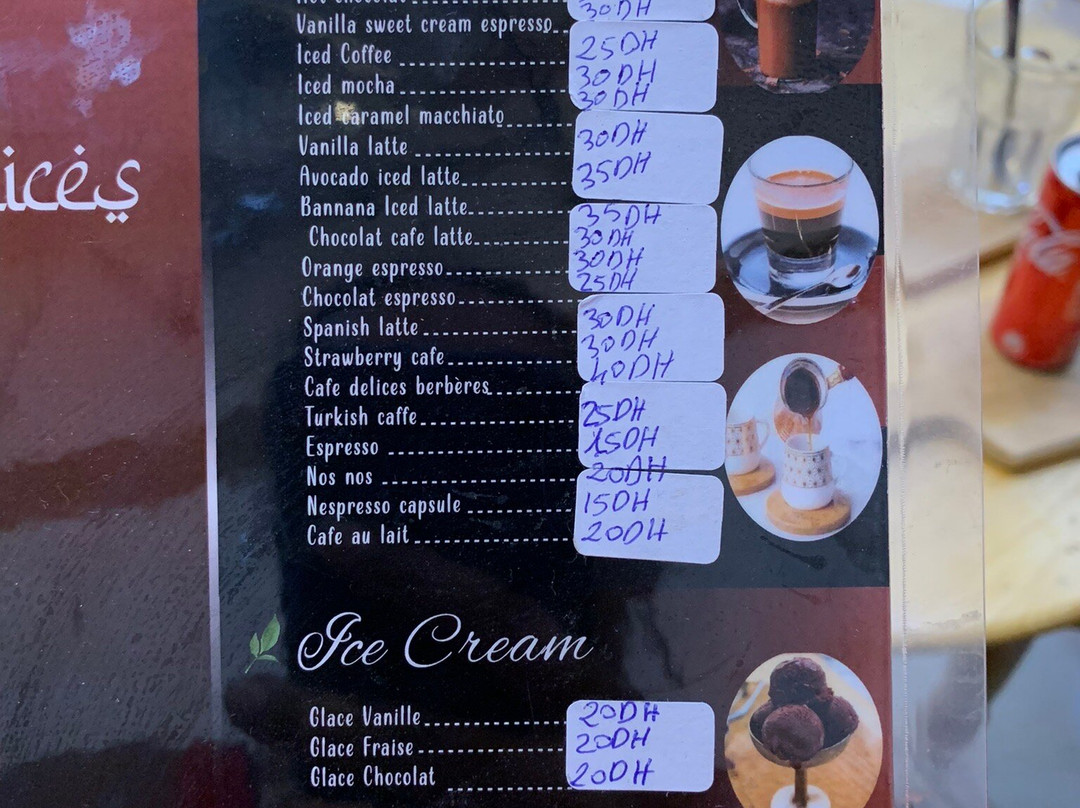 Hot chocolat
Vanilla sweet cream espresso 30DH
Iced Coffee 25DH
Iced mocha 30DH
Iced caramel macchiato 30DH
Vanilla latte 30DH
Avocado iced latte 35DH
Bannana Iced latte 35DH
Chocolat cafe latte 30DH
Orange espresso 30DH
Chocolat espresso 25DH
Spanish latte 30DH
Strawberry cafe 30DH
Cafe delices berbères 40DH
Turkish caffe 25DH
Espresso 15DH
Nos nos 20DH
Nespresso capsule 15DH
Cafe au lait 20DH
Ice Cream
Glace Vanille 20DH
Glace Fraise 20DH
Glace Chocolat 20DH